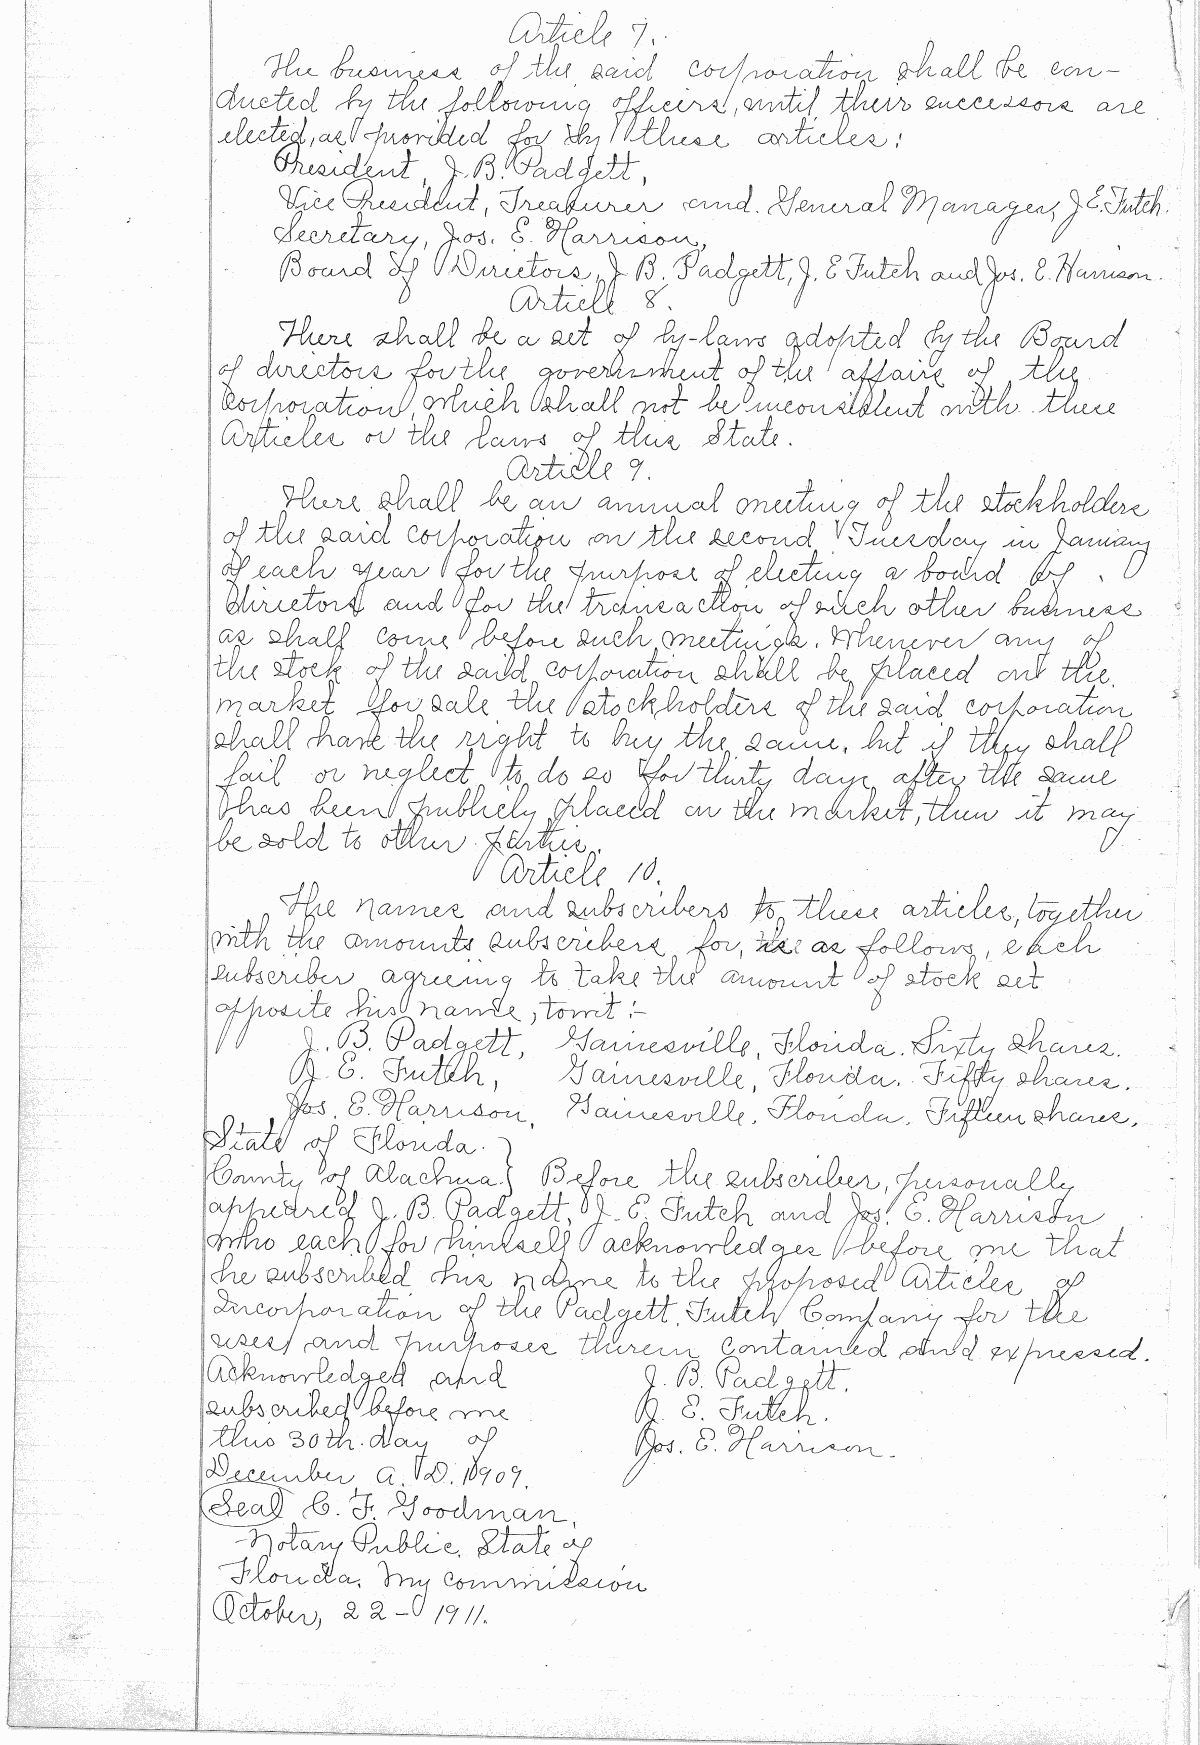 Article 7.
The business of the said corporation shall be con-
ducted by the following officers, until their successors are
elected, as provided for by these articles:
President, J. B. Padgett,
Vice President, Treasurer and General Manager, J. E. Futch.
Secretary, Jos. E. Harrison,
Board of Directors, J. B. Padgett, J. E Futch and Jos. E. Harrison.
Article 8.
There shall be a set of by-laws adopted by the Board
of directors for the government of the affairs of the
Corporation, which shall not be inconsistent with these
Articles or the laws of this State.
Article 9.
There shall be an annual meeting of the stockholders
of the said corporation on the second Tuesday in January
of each year for the purpose of electing a board of
directors and for the transaction of such other business
as shall come before such meetings. Whenever any of
the stock of the said corporation shall be placed on the
market for sale the stockholders of the said corporation
shall have the right to buy the same, but if they shall
fail or neglect to do so for thirty days after the same
has been publicly placed on the market, then it may
be sold to other parties.
Article 10.
The names and subscribers to these articles, together
with the amounts subscribers for, as follows, each
subscriber agreeing to take the amount of stock set
opposite his name, towit:-
J. B. Padgett, Gainesville, Florida. Sixty shares.
J. E. Futch, Gainesville, Florida. Fifty shares.
Jos. E. Harrison, Gainesville, Florida. Fifteen shares.
State of Florida. }
County of Alachua. } Before the subscriber, personally
appeared J. B. Padgett, J. E. Futch and Jos. E. Harrison
who each for himself acknowledges before me that
he subscribed his name to the proposed Articles of
Incorporation of the Padgett Futch Company for the
uses and purposes therein contained and expressed.
Acknowledged and J. B. Padgett.
subscribed before me J. E. Futch.
this 30th. day of Jos. E. Harrison.
December, A. D. 1909.
Seal C. F. Goodman,
Notary Public, State of
Florida. My commission
October, 22- 1911.